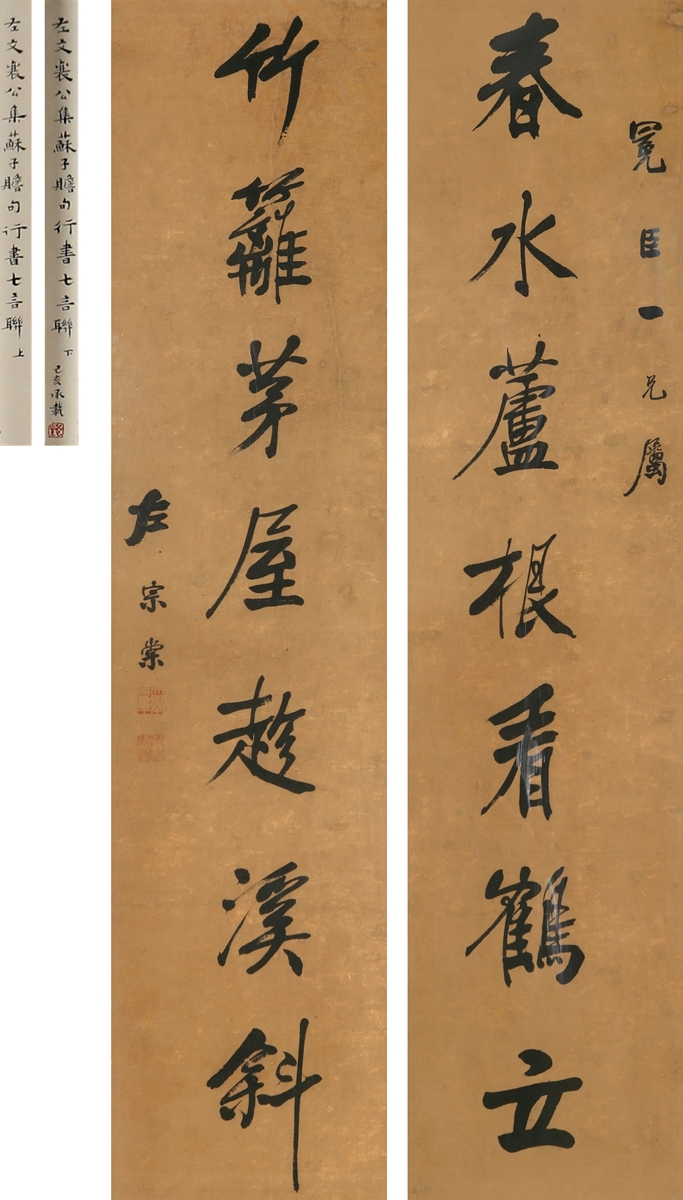 冕臣一兄屬
春水蘆根看鶴立
竹籬茅屋趁溪斜
左宗棠
左文襄公集蘇子瞻句行書七言聯 下
己亥承載
左文襄公集蘇子瞻句行書七言聯 上